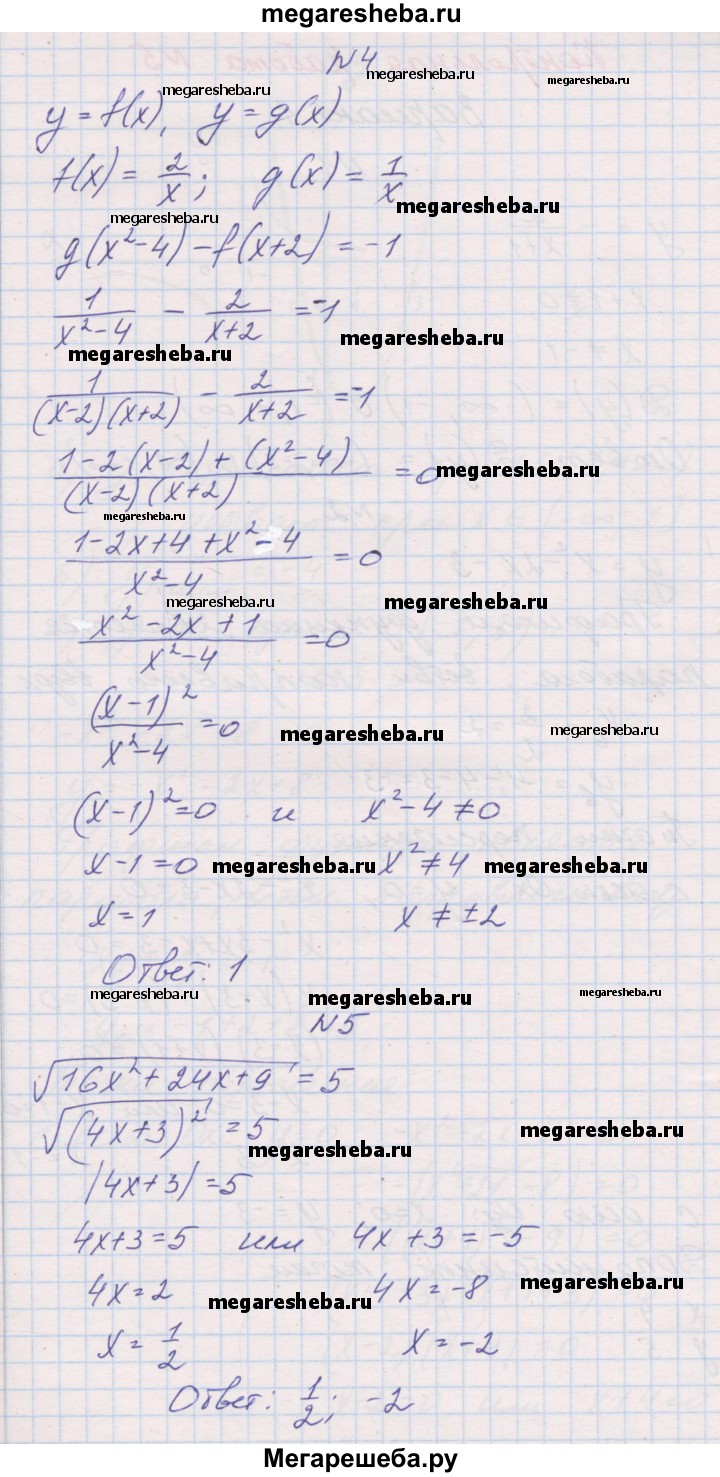 megaresheba.ru
N4
megaresheba.ru
megaresheba.ru
y = f(x), y = g(x)
f(x) = 2/x; g(x) = 1/x
megaresheba.ru
megaresheba.ru
g(x²-4) - f(x+2) = -1
1/(x²-4) - 2/(x+2) = -1
megaresheba.ru
megaresheba.ru
1/((x-2)(x+2)) - 2/(x+2) = -1
(1-2(x-2)+(x²-4))/((x-2)(x+2)) = 0
megaresheba.ru
megaresheba.ru
(1-2x+4+x²-4)/(x²-4) = 0
megaresheba.ru
megaresheba.ru
(x²-2x+1)/(x²-4) = 0
(x-1)²/(x²-4) = 0
megaresheba.ru
megaresheba.ru
(x-1)² = 0 и x²-4 ≠ 0
x-1 = 0 megaresheba.ru x² ≠ 4 megaresheba.ru
x = 1 x ≠ ±2
Ответ: 1
megaresheba.ru
megaresheba.ru
megaresheba.ru
N5
√(16x²+24x+9) = 5
√((4x+3)²) = 5
megaresheba.ru
megaresheba.ru
|4x+3| = 5
4x+3 = 5 или 4x+3 = -5
4x = 2 4x = -8
megaresheba.ru
megaresheba.ru
x = 1/2 x = -2
Ответ: 1/2; -2
Мегарешеба.ру